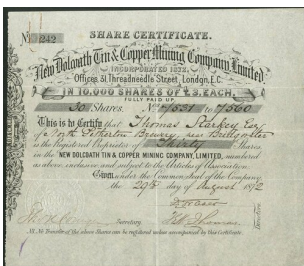 SHARE CERTIFICATE.
No 242
New Dolcoath Tin & Copper Mining Company Limited
INCORPORATED 1872.
Offices, 31 Threadneedle Street, London, E.C.
IN 10,000 SHARES OF £3. EACH,
FULLY PAID UP.
30 Shares. Nos 7531 to 7560
This is to Certify that Thomas Starkey Esq
of North Petherton Brewery, near Bridgwater
is the Registered Proprietor of Thirty Shares
in the NEW DOLCOATH TIN & COPPER MINING COMPANY, LIMITED, numbered
as above, inclusive, and subject to the Articles of Association.
Given under the Common Seal of the Company,
the 20th day of August 1872
Secretary
Directors
N.B. No Transfer of the above Shares can be registered unless accompanied by this Certificate.